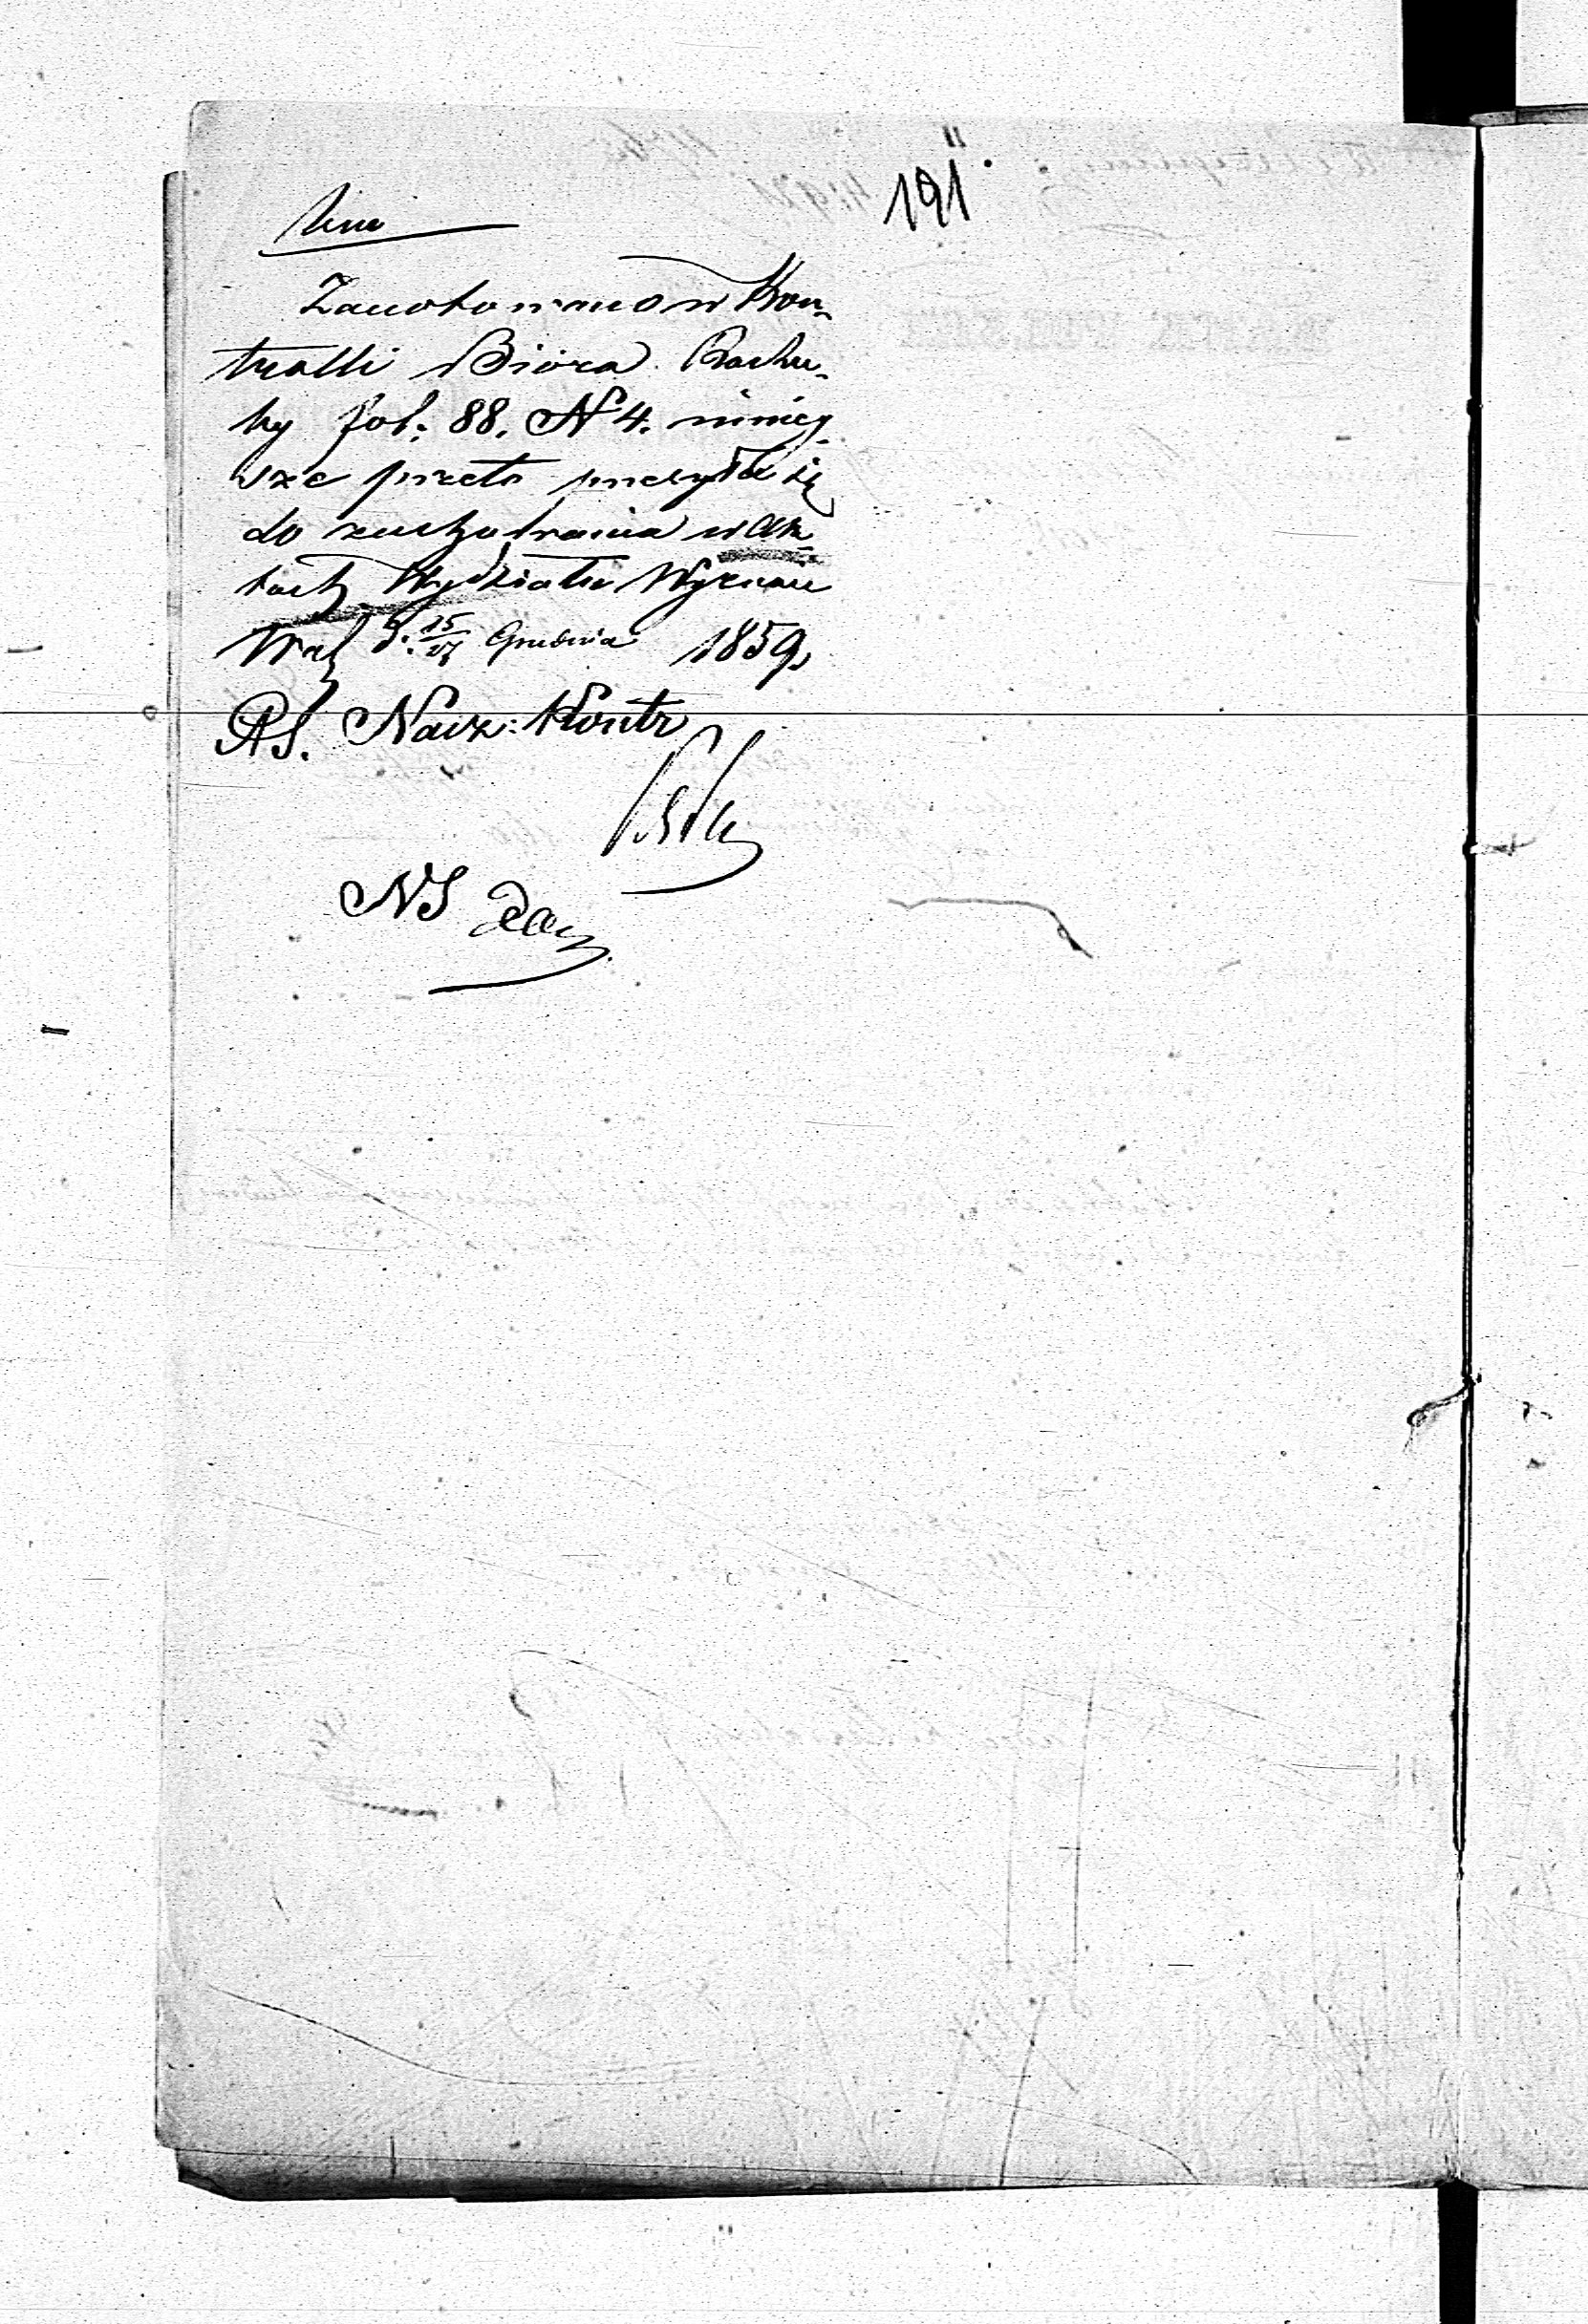 191
Zanotowano w Kon-
trolli Bióra Rachu-
by fol: 88. N 4. niniey-
sze przeto przesyła się
do zachowania w Ak-
tach Wydziału Wyznań
War d. 15/27 Grudnia 1859
AS. Nacz: Kontr
NS